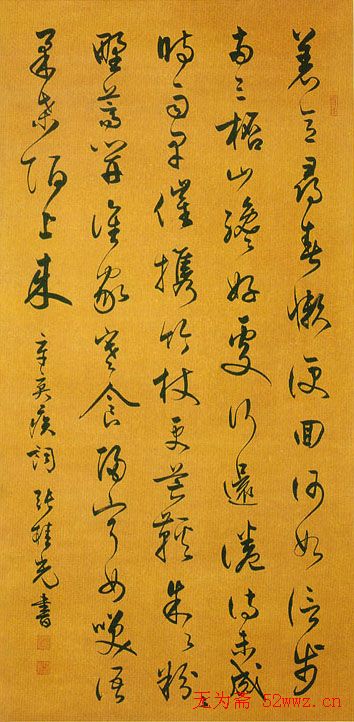 著意尋春懶便回何如信步
两三桮山纔好處行還倦詩未成
時雨早催攜竹杖更芒鞵朱〻粉〻
野蒿開誰家寒食歸寧女笑語
柔桑陌上来
辛棄疾詞 張桂光書
无为斋 52wwz.cn